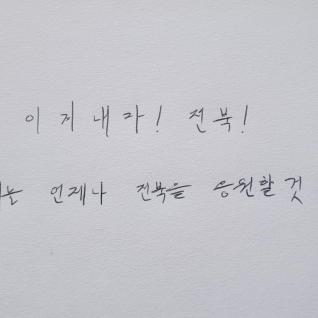 이 지 내 자! 전 북!
언제나 전북을 응원할 것